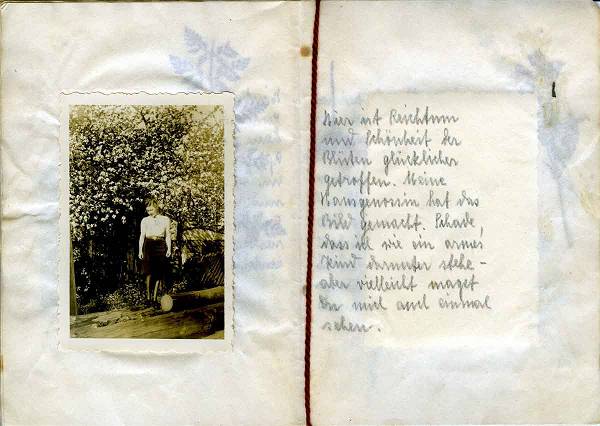 Hier ist Reichtum
und Schönheit der
Blüten glücklicher
getroffen. Meine
Hausgenossin hat das
Bild gemacht. Schade,
dass ich wie ein armes
Kind darunter stehe -
aber vielleicht magst
Du mich auch einmal
sehen.